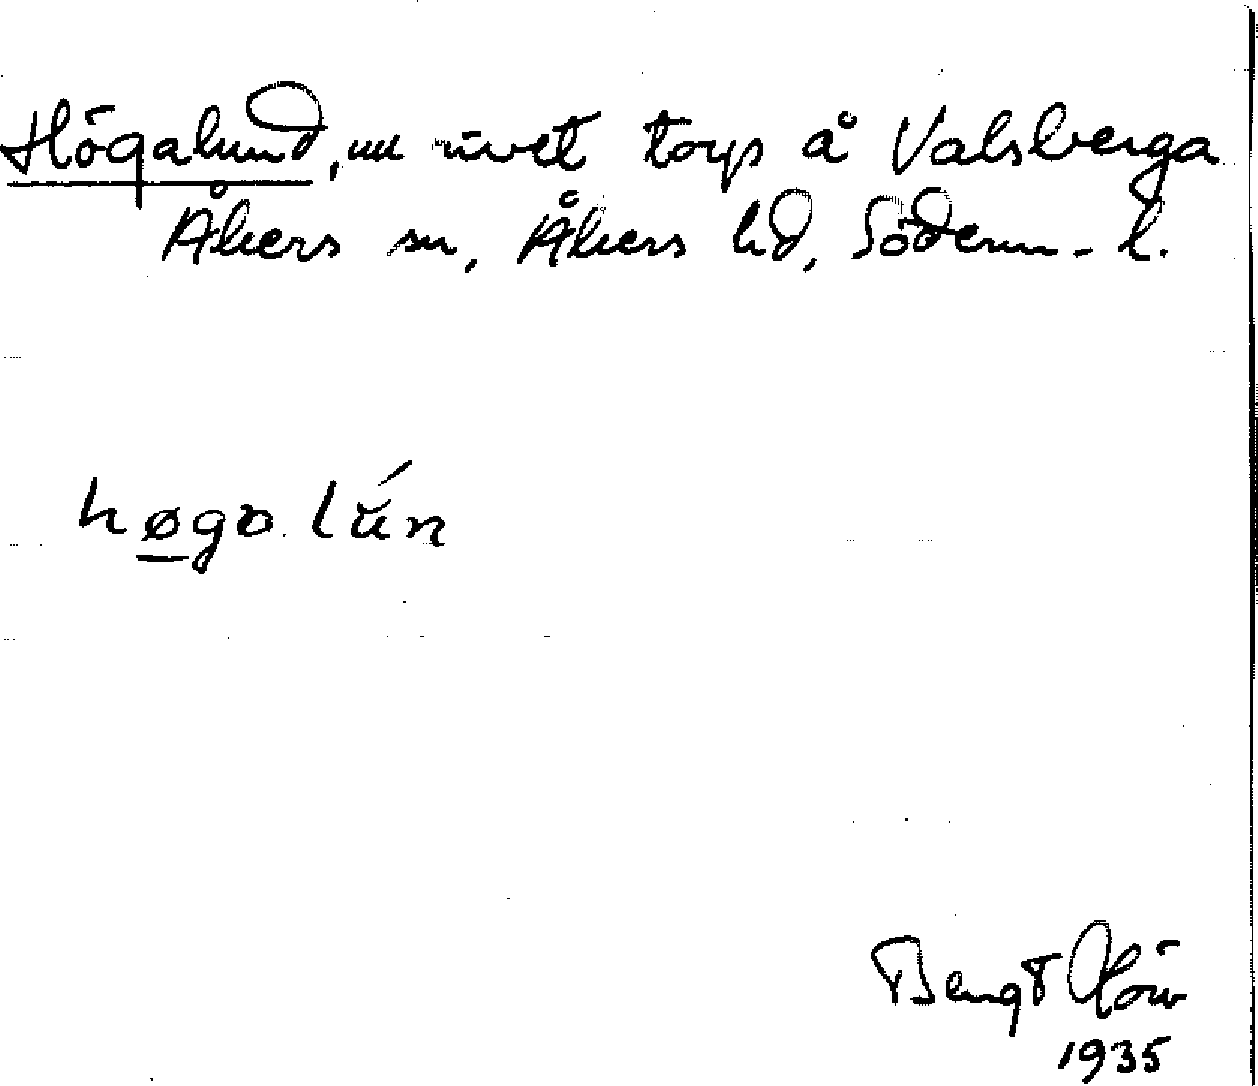 Högalund, nu rivet torp å Valsberga
Åkers sn, Åkers hd, Söderm. l.
høgɷ lún
Bengt
1935